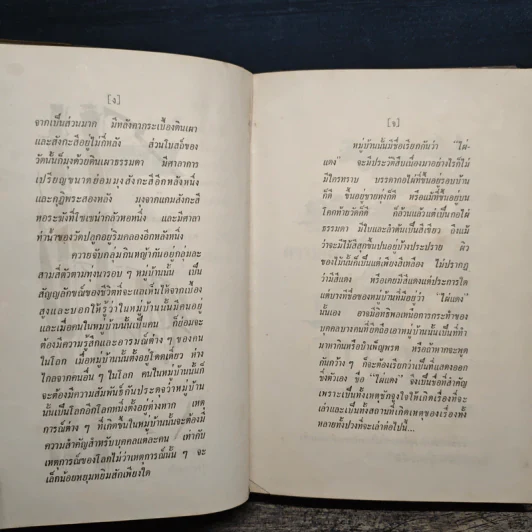 [ง]
จากเป็นส่วนมาก มีหลังคากระเบื้องดินเผา
และสังกะสีอยู่ไม่กี่หลัง ส่วนโบสถ์ของ
วัดนั้นก็มุงด้วยดินเผาธรรมดา มีศาลาการ
เปรียญขนาดย่อมมุงสังกะสีอีกหลังหนึ่ง
และกุฏิพระสองหลัง มุงจากแกมสังกะสี
หอระฆังที่โย้เย้น่ากลัวหอหนึ่ง และมีศาลา
ท่าน้ำของวัดปลูกอยู่ริมคลองอีกหลังหนึ่ง
ควายจับกลุ่มกินหญ้ากันอยู่กลุ่มละ
สามสี่ตัวตามทุ่งนารอบ ๆ หมู่บ้านนั้น เป็น
สัญญลักษณ์ของชีวิตที่จะแลเห็นได้จากเบื้อง
สูงและบอกให้รู้ว่าในหมู่บ้านนั้นมีคนอยู่
และเมื่อคนในหมู่บ้านนั้นเป็นคน ก็ย่อมจะ
ต้องมีความรู้สึกและอารมณ์ต่าง ๆ ของคน
ในโลก เมื่อหมู่บ้านนั้นตั้งอยู่โดดเดี่ยว ห่าง
ไกลจากคนอื่น ๆ ในโลก คนในหมู่บ้านนั้นก็
จะต้องมีความสัมพันธ์กันประดุจว่าหมู่บ้าน
นั้นเป็นโลกอีกโลกหนึ่งตั้งอยู่ต่างหาก เหตุ
การณ์ต่าง ๆ ที่เกิดขึ้นในหมู่บ้านนั้นจะต้องมี
ความสำคัญสำหรับบุคคลแต่ละคน เท่ากับ
เหตุการณ์ของโลกไม่ว่าเหตุการณ์นั้น ๆ จะ
เล็กน้อยหยุมหยิมสักเพียงใด
[จ]
หมู่บ้านนั้นมีชื่อเรียกกันว่า "ไผ่-
แดง" จะมีประวัติสืบเนื่องมาอย่างไรก็ไม่
มีใครทราบ บรรดากอไผ่ที่ขึ้นอยู่รอบบ้าน
ก็ดี ขึ้นอยู่ชายทุ่งก็ดี หรือแม้ที่ขึ้นอยู่บน
โคกท้ายวัดก็ดี ก็ล้วนแล้วแต่เป็นกอไผ่
ธรรมดา มีใบและลำต้นเป็นสีเขียว ถึงแม้
ว่าจะมีไม้สีสุกขึ้นปนอยู่บ้างประปราย ผิว
ของไม้นั้นก็เป็นแต่เพียงสีเหลือง ไม่ปรากฏ
ว่ามีสีแดง หรือเคยมีสีแดงแต่ประการใด
แต่บางทีชื่อของหมู่บ้านที่มีอยู่ว่า "ไผ่แดง"
นั้นเอง อาจมีอิทธิพลเหนือการกระทำของ
บุคคลบางคนที่ยึดถือเอาหมู่บ้านนั้นเป็นที่ทำ
มาหากินหรือบำเพ็ญพรต หรือถ้าหากจะพูด
กันกว้าง ๆ ก็จะต้องเรียกว่าเป็นที่แสดงออก
ซึ่งตัวเอง ชื่อ "ไผ่แดง" จึงเป็นชื่อที่สำคัญ
เพราะเป็นทั้งเหตุชักจูงใจให้เกิดเรื่องที่จะ
เล่าและเป็นทั้งสถานที่เกิดเหตุของเรื่องทั้ง
หลายทั้งปวงที่จะเล่าต่อไปนี้...